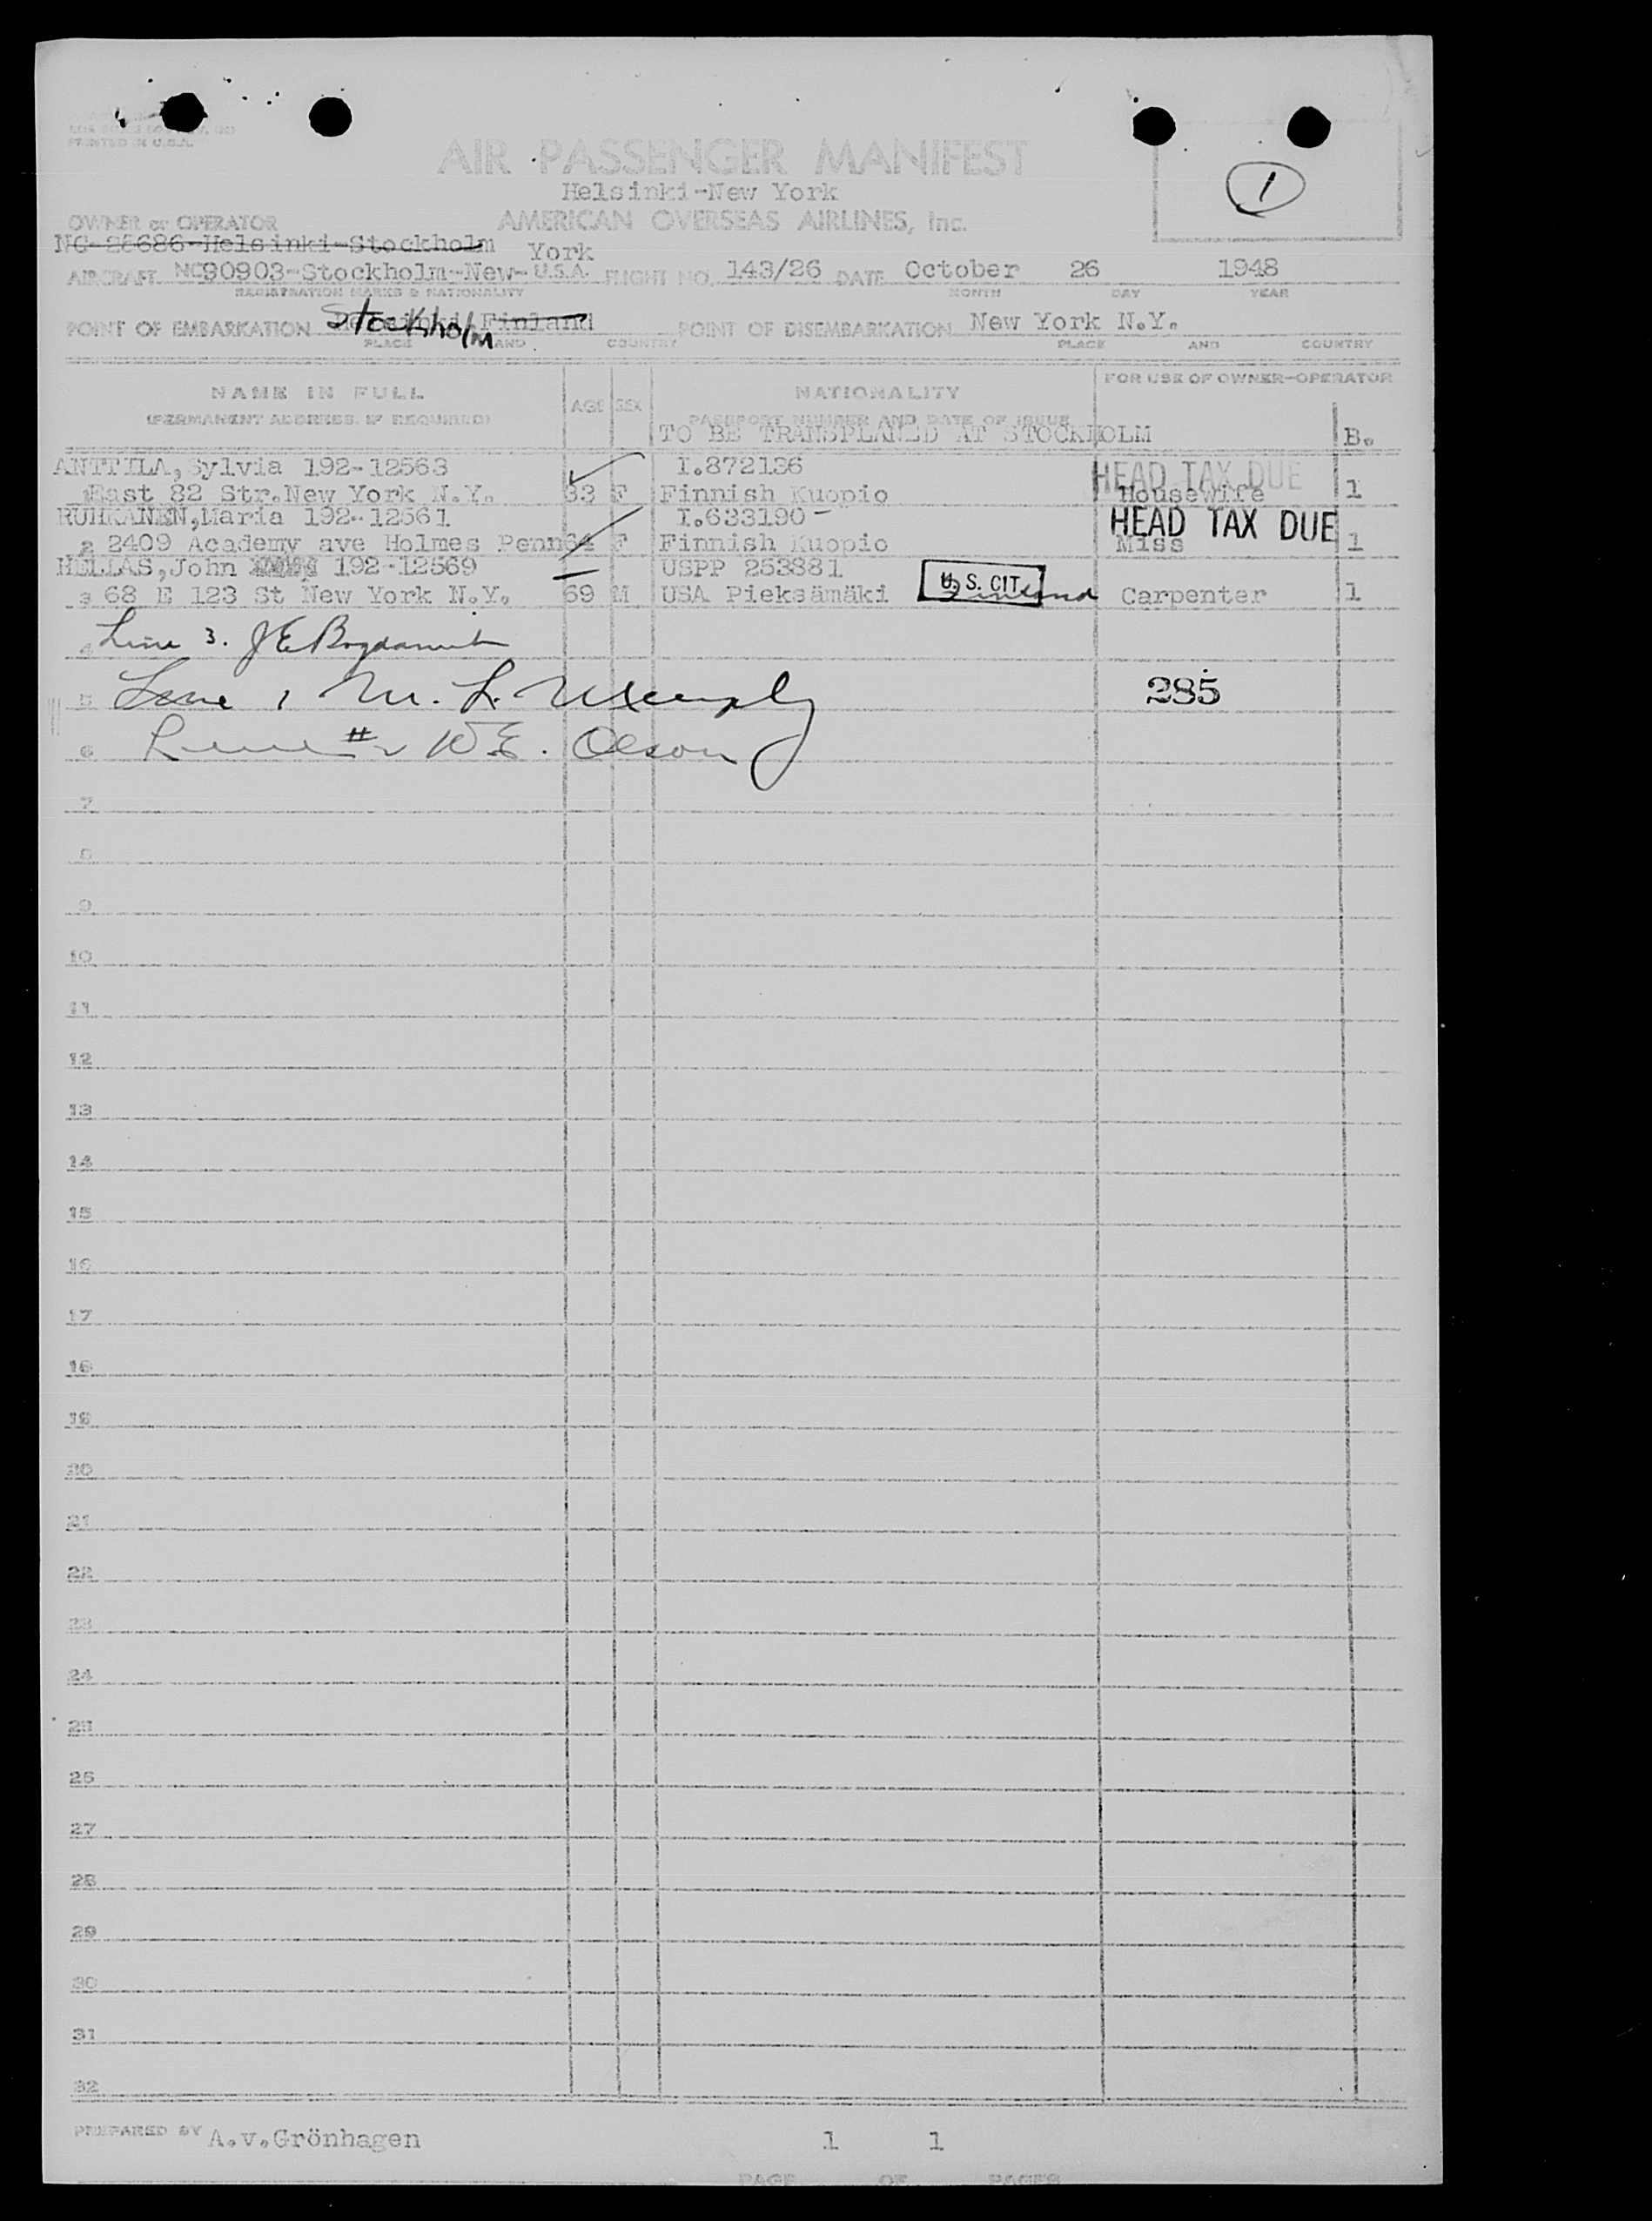 PRINTED IN U.S.A.
AIR PASSENGER MANIFEST
1
Helsinki-New York
OWNER or OPERATOR AMERICAN OVERSEAS AIRLINES, Inc.
NC-26686-Helsinki-Stockholm York
AIRCRAFT NC90903-Stockholm-New- U.S.A. FLIGHT NO. 143/26 DATE October 26 1948
REGISTRATION MARKS & NATIONALITY MONTH DAY YEAR
POINT OF EMBARKATION Stockholm Helsinki Finland POINT OF DISEMBARKATION New York N.Y.
PLACE AND COUNTRY PLACE AND COUNTRY
NAME IN FULL AGE SEX NATIONALITY FOR USE OF OWNER-OPERATOR
(PERMANENT ADDRESS, IF REQUIRED) PASSPORT NUMBER AND DATE OF ISSUE
TO BE TRANSPLANED AT STOCKHOLM B.
ANTTILA, Sylvia 192-12563 I.872136 HEAD TAX DUE
1 East 82 Str. New York N.Y. 33 F Finnish Kuopio Housewife 1
RUHKANEN, Maria 192-12561 I.633190- HEAD TAX DUE
2 2409 Academy ave Holmes Penn 64 F Finnish Kuopio Miss 1
HELLAS, John 192-12569 USPP 253881 U.S. CIT.
3 68 E 123 St New York N.Y. 69 M USA Pieksämäki Finland Carpenter 1
4 Line 3. J E
5 Line 1 M. L. 285
6 Line #2 W E. Olson
7
8
9
10
11
12
13
14
15
16
17
18
19
20
21
22
23
24
25
26
27
28
29
30
31
32
PREPARED BY A.v.Grönhagen 1 1
PAGE OF PAGES